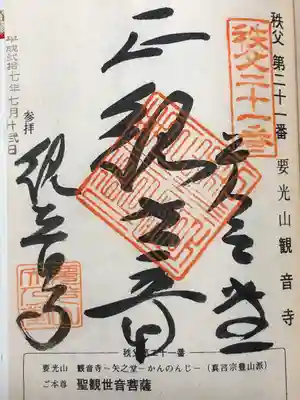 秩父 第二十一番 要光山観音寺
秩父二十一番
正観世音
観音寺
参拝
平成弐拾七年七月十弐日
秩父第二十一番
要光山 観音寺〜矢之堂〜かんのんじ〜 (真言宗豊山派)
ご本尊 聖観世音菩薩